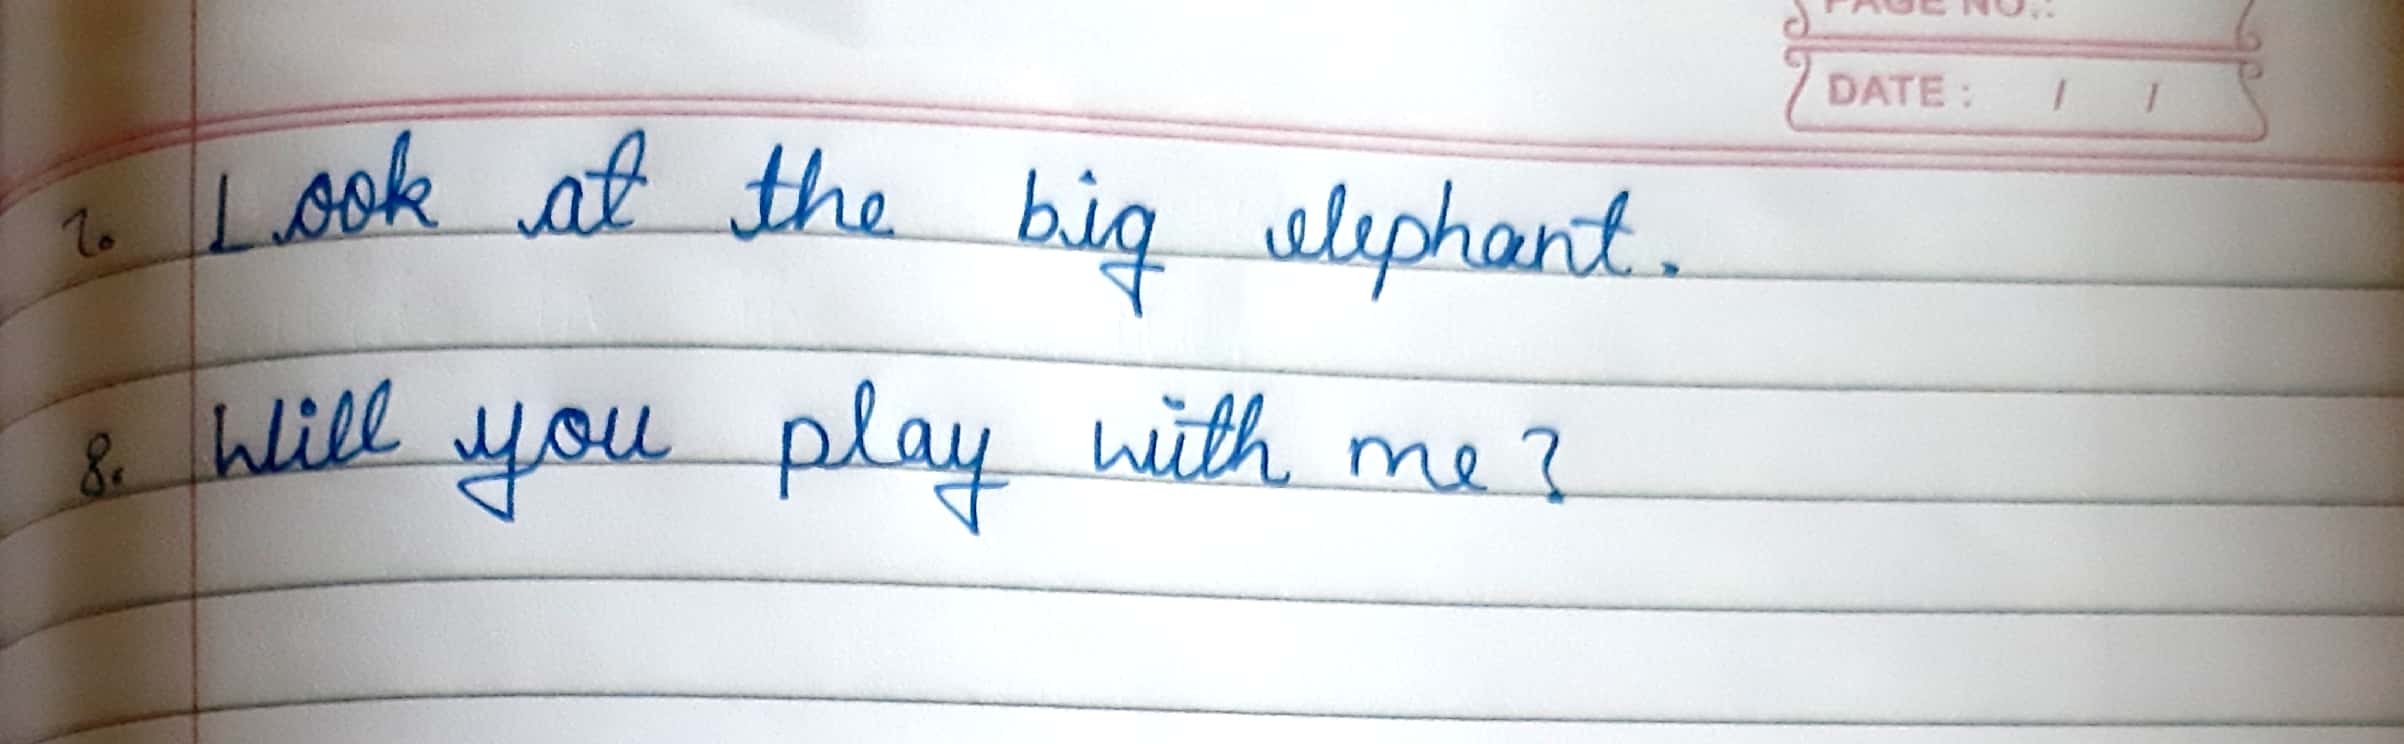 PAGE NO.:
DATE: / /
7. Look at the big elephant.
8. Will you play with me?